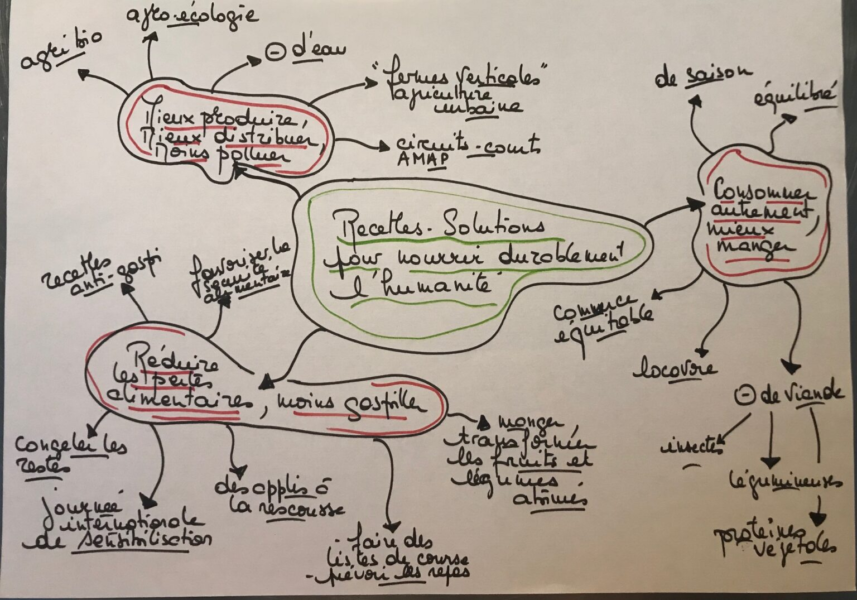 agro-écologie
agri bio
⊖ d'eau
"fermes verticales"
agriculture
urbaine
circuits-courts
AMAP
Mieux produire,
Mieux distribuer,
Moins polluer
de saison
équilibré
Consommer
autrement,
mieux
manger
Recettes-Solutions
pour nourrir durablement
l'humanité
commerce
équitable
locavore
⊖ de viande
insectes
légumineuses
protéines
végétales
recettes
anti-gaspi
favoriser la
sécurité
alimentaire
Réduire
les pertes
alimentaires, moins gaspiller
congeler les
restes
journée
internationale
de sensibilisation
des applis à
la rescousse
- faire des
listes de course
- prévoir les repas
manger
transformer
les fruits et
légumes
abîmés